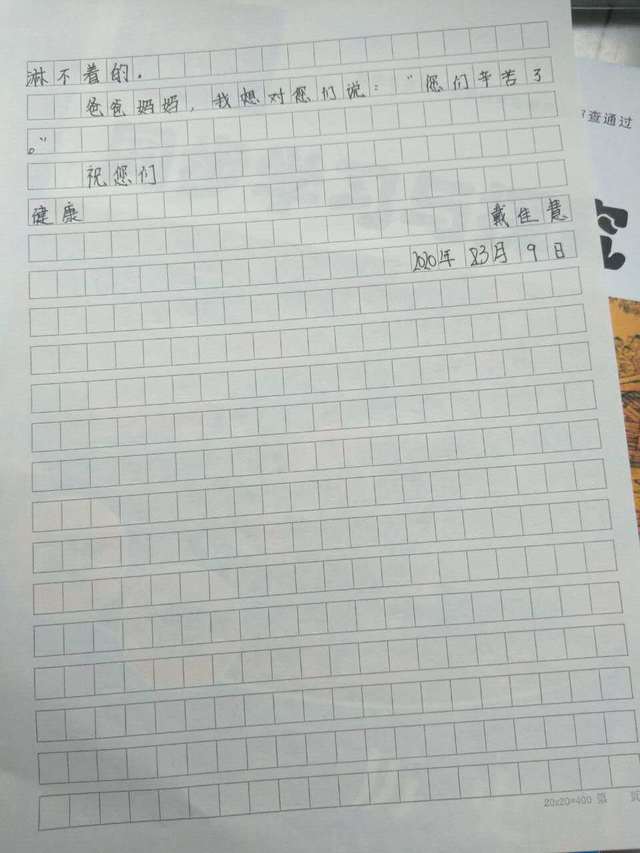 淋不着的.
爸爸妈妈，我想对您们说：“您们辛苦了
。”
祝您们
健康
戴佳慧
2020年 3月 9日
查通过
20x20=400 第 页